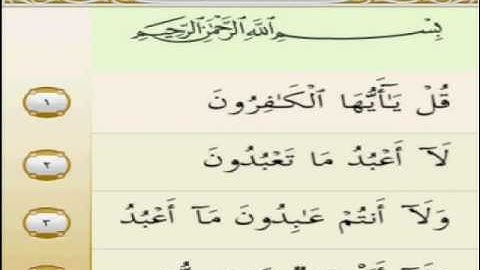 بِسْمِ ٱللَّهِ ٱلرَّحْمَٰنِ ٱلرَّحِيمِ
١ قُلْ يَـٰٓأَيُّهَا ٱلْكَـٰفِرُونَ
٢ لَآ أَعْبُدُ مَا تَعْبُدُونَ
٣ وَلَآ أَنتُمْ عَـٰبِدُونَ مَآ أَعْبُدُ